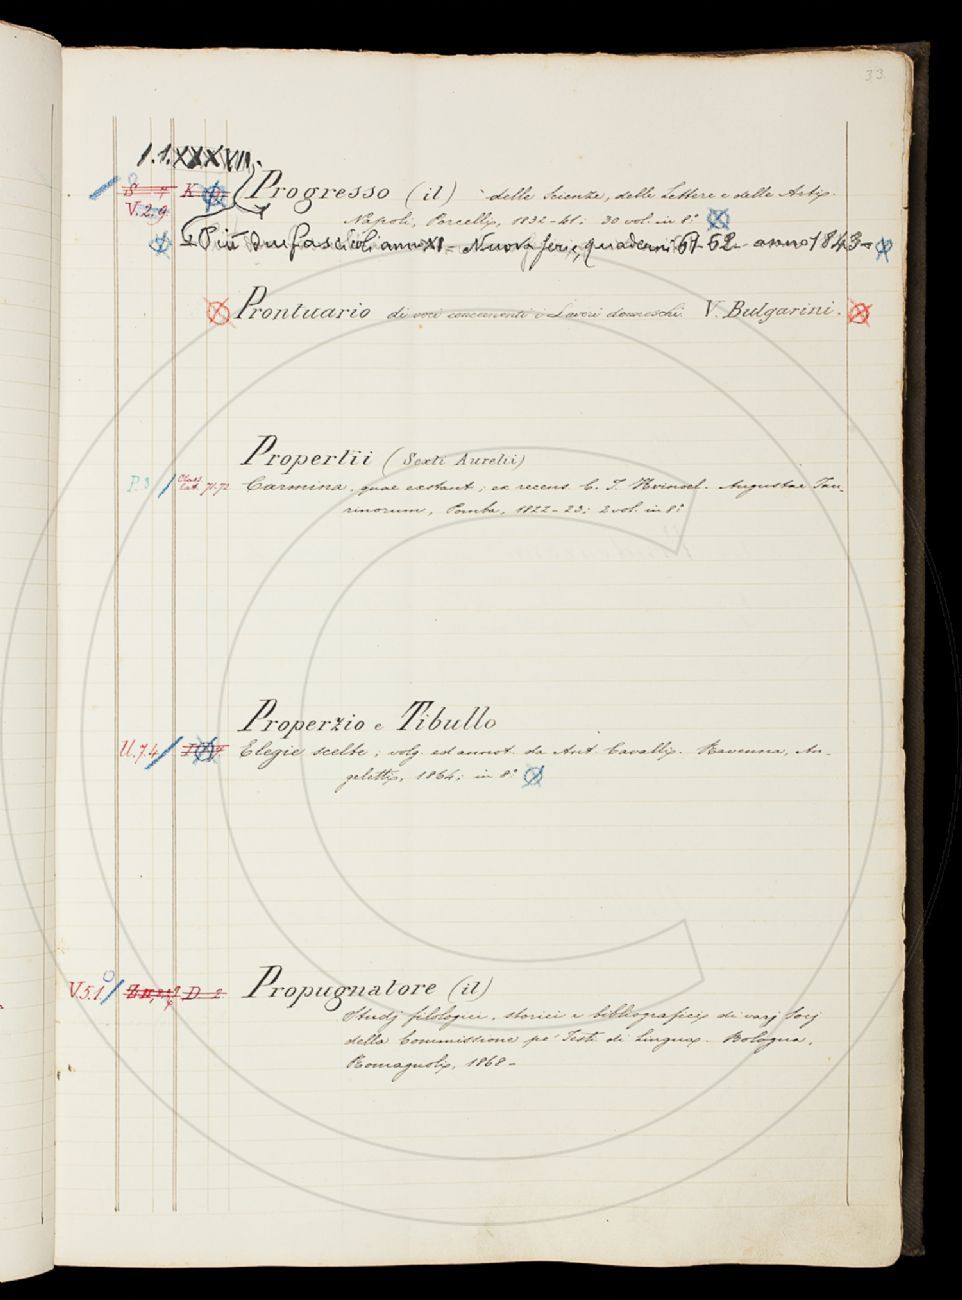 33
1.1.XXXVII.
S 7 K D. Progresso (il) delle Scienze, delle Lettere e delle Arti.
V.2.9 Napoli, Porcelli, 1832-41; 30 vol. in 8°
Più due fascicoli anno XI - Nuova serie, quaderni 61-62 - anno 1843 -
Prontuario di voci concernenti i Lavori V. Bulgarini.
Propertii (Sexti Aurelii)
P.3 Class. Lat. 71-72 Carmina quae exstant; ex recens. C. T. Kuinoel. Augustae Tau-
rinorum, Pomba, 1822-23; 2 vol. in 8°
Properzio e Tibullo
U.7.4 Elegie scelte; volg. ed annot. da Ant. Cavalli. Ravenna, An-
geletti, 1864; in 8°
V.5.1 D 2 Propugnatore (il)
Studj filologici, storici e bibliografici di varj Socj
della Commissione pe' Testi di Lingua. Bologna,
Romagnoli, 1868-